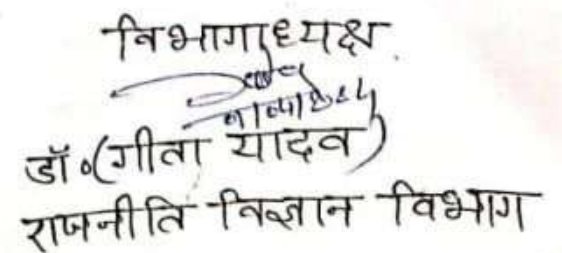 विभागाध्यक्ष
डॉ॰(गीता यादव)
राजनीति विज्ञान विभाग